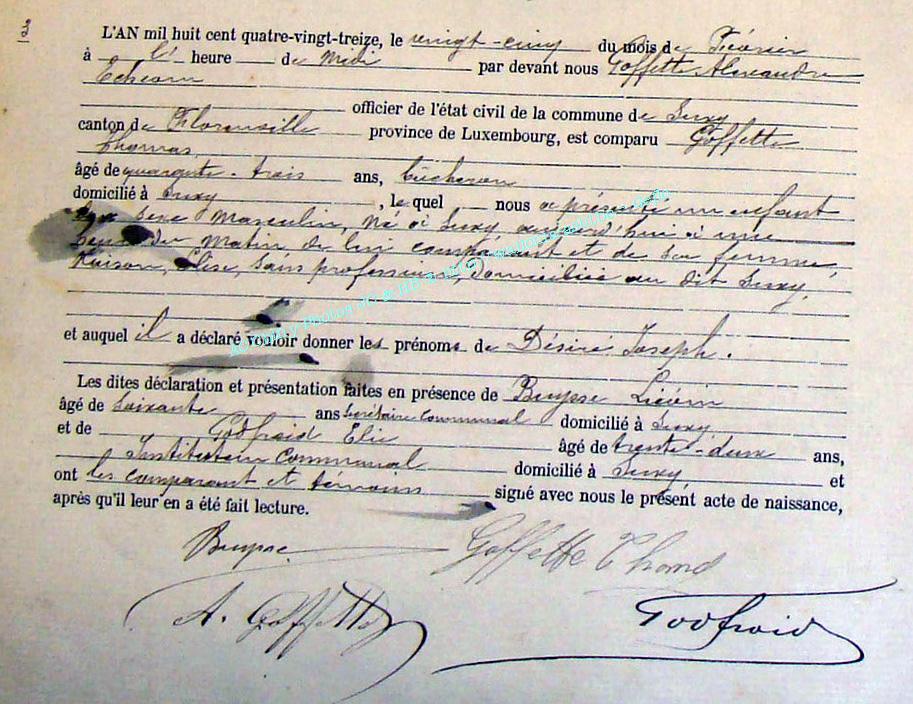 3
L'AN mil huit cent quatre-vingt-treize, le vingt-cinq du mois de Février
à l' heure de Midi par devant nous Goffette Alexandre
Échevin
officier de l'état civil de la commune de Suxy
canton de Florenville province de Luxembourg, est comparu Goffette
Thomas
âgé de quarante-trois ans, bûcheron
domicilié à Suxy, le quel nous a présenté un enfant
du sexe masculin, né à Suxy aujourd'hui à une
heure du matin de lui comparant et de son femme,
Élise, sans profession, domiciliée au dit Suxy.
et auquel il a déclaré vouloir donner les prénoms de Désiré Joseph.
Les dites déclaration et présentation faites en présence de Buysse Liévin
âgé de soixante ans Secrétaire communal domicilié à Suxy
et de Godfroid Elie âgé de trente-deux ans,
Instituteur Communal domicilié à Suxy et
ont les comparant et témoins signé avec nous le présent acte de naissance,
après qu'il leur en a été fait lecture.
Buysse Goffette Thomas
A. Goffette Godfroid